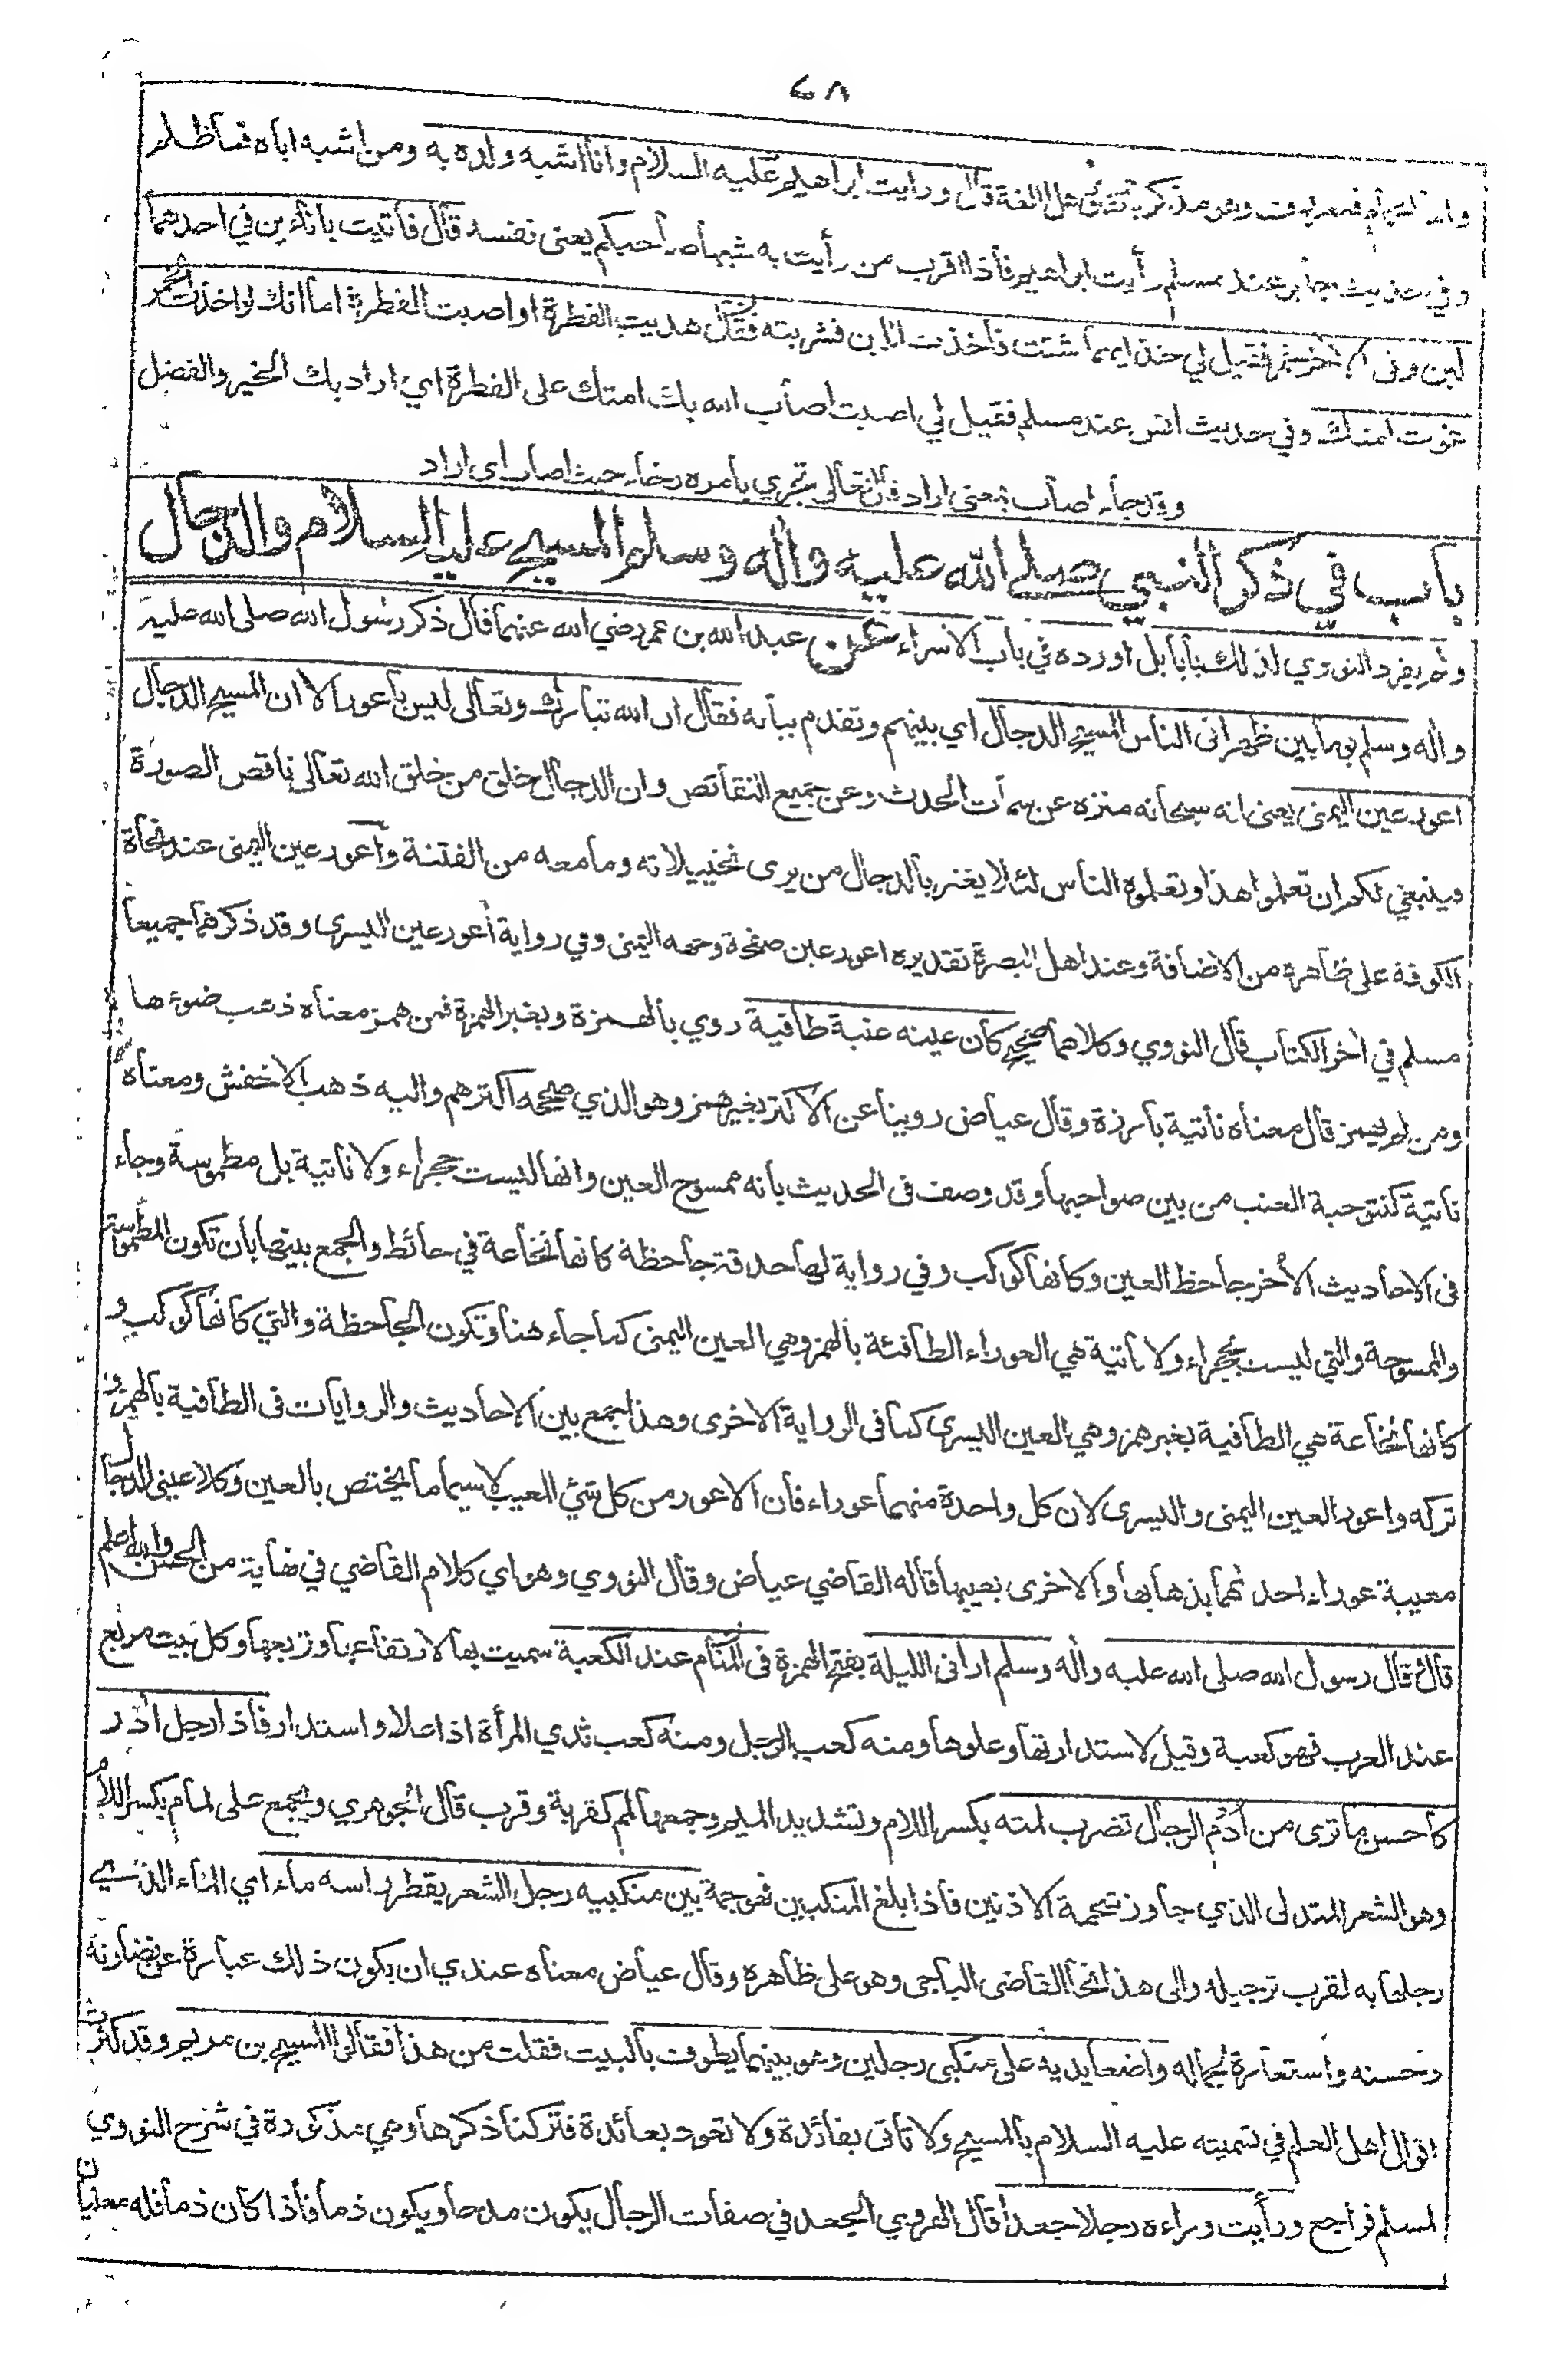 ٤٨
واما الحمام فمعروف وهو مذكر باتفاق اهل اللغة قال ورايت ابراهيم عليه السلام وانا اشبه ولده به ومن اشبه اباه فما ظلم
وفي حديث جابر عند مسلم رأيت ابراهيم فاذا اقرب من رأيت به شبها صاحبكم يعنى نفسه قال فأتيت باناءين في احدهما
لبن وفى الاخر خمر فقيل لي خذ ايهما شئت فأخذت اللبن فشربته فقال هديت الفطرة او اصبت الفطرة اما انك لو اخذت الخمر
غوت امتك وفي حديث انس عند مسلم فقيل لي اصبت اصاب الله بك امتك على الفطرة اي اراد بك الخير والفضل
وقد جاء اصاب بمعنى اراد قال تعالى تجري بأمره رخاء حيث اصاب اى اراد
باب في ذكر النبي صلى الله عليه واله وسلم المسيح عليه السلام والدجال
ولم يفرد النووي لذلك بابا بل اورده في باب الاسراء عن عبد الله بن عمر رضي الله عنهما قال ذكر رسول الله صلى الله عليه
واله وسلم يوما بين ظهرانى الناس المسيح الدجال اي بينهم وتقدم بيانه فقال ان الله تبارك وتعالى ليس بأعور الا ان المسيح الدجال
اعور عين اليمنى يعنى انه سبحانه منزه عن سمات الحدث وعن جميع النقائص وان الدجال خلق من خلق الله تعالى ناقص الصورة
وينبغي لكم ان تعلموا هذا وتعلموه الناس لئلا يغتر بالدجال من يرى تخييلاته وما معه من الفتنة واعور عين اليمنى عند نحاة
الكوفة على ظاهره من الاضافة وعند اهل البصرة تقديره اعور عين صفحة وجهه اليمنى وفي رواية أعور عين اليسرى وقد ذكرهما جميعا
مسلم في اخر الكتاب قال النووي وكلاهما صحيح كان عينه عنبة طافية روي بالهمزة وبغير الهمزة فمن همز معناه ذهب ضوءها
ومن لم يهمز قال معناه ناتية بارزة وقال عياض روينا عن الاكثر بغير همز وهو الذي صححه اكثرهم واليه ذهب الاخفش ومعناه
ناتية كنتو حبة العنب من بين صواحبها وقد وصف فى الحديث بانه ممسوح العين وانها ليست حجراء ولا ناتية بل مطموسة وجاء
فى الاحاديث الأخر جاحظ العين وكانها كوكب وفي رواية لها حدقة جاحظة كانها نخاعة في حائط والجمع بينها بان تكون المطموسة
والممسوحة والتي ليست بحجراء ولا ناتية هي العوراء الطافئة بالهمز وهي العين اليمنى كما جاء هنا وتكون الجاحظة والتي كانها كوكب و
كانها نخاعة هي الطافية بغير همز وهي العين اليسرى كما فى الرواية الاخرى وهذا جمع بين الاحاديث والروايات فى الطافية بالهمز و
تركه واعور العين اليمنى واليسرى لان كل واحدة منهما عوراء فان الاعور من كل شيء المعيب لاسيما ما يختص بالعين وكلا عيني الدجال
معيبة عوراء احدهما بذهابها والاخرى بعيبها قاله القاضي عياض وقال النووي وهو اي كلام القاضي في نهاية من الحسن والله اعلم
قال قال رسول الله صلى الله عليه واله وسلم اراني الليلة بفتح الهمزة فى المنام عند الكعبة سميت بها لارتفاعها وتربعها وكل بيت مربع
عند العرب فهو كعبة وقيل لاستدارتها وعلوها ومنه كعب الرجل ومنه كعب ثدي المرأة اذا علا واستدار فاذا رجل آدم
كاحسن ما ترى من أدم الرجال تضرب لمته بكسر اللام وتشديد الميم وجمعها لمم كقربة وقرب قال الجوهري ويجمع على لمام بكسر اللام
وهو الشعر المتدلى الذي جاوز شحمة الاذنين فاذا بلغ المنكبين فهو جمة بين منكبيه رجل الشعر يقطر راسه ماء اي الماء الذي
رجلها به لقرب ترجيله والى هذا نحا القاضى الباجى وهو على ظاهره وقال عياض معناه عندي ان يكون ذلك عبارة عن نضارته
وحسنه واستعارة لجماله واضعا يديه على منكبى رجلين وهو بينهما يطوف بالبيت فقلت من هذا فقالوا المسيح بن مريم وقد كثرت
اقوال اهل العلم في تسميته عليه السلام بالمسيح ولا تأتى بفائدة ولا تعود بعائدة فتركنا ذكرها وهي مذكورة في شرح النووي
لمسلم فراجع ورأيت وراءه رجلا جعدا قال الهروي الجعد في صفات الرجال يكون مدحا ويكون ذما فاذا كان ذما فله معنيان